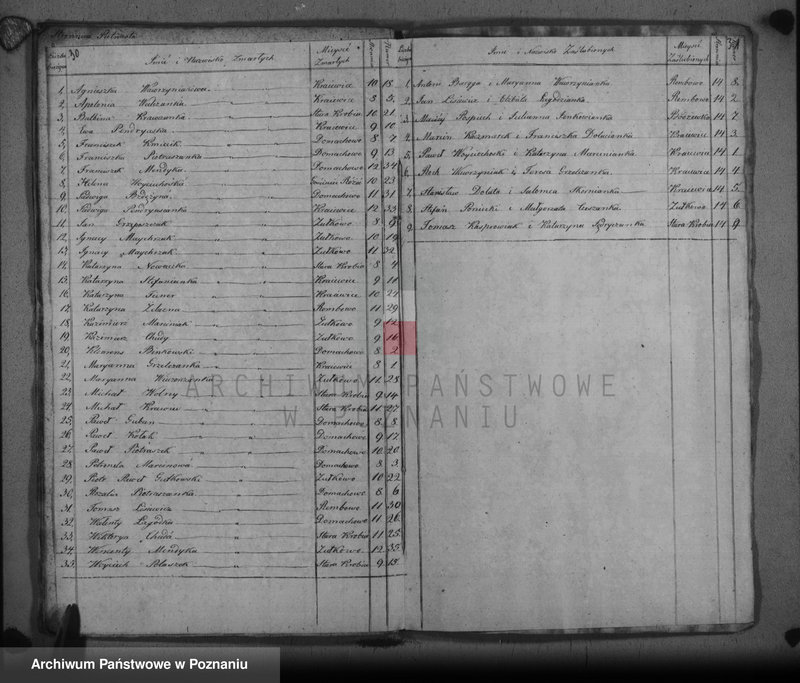 30
Liczba bieżąca
Imie i Nazwiska Zmarłych
Mieysce Zmarłych
1. Agnieszka Wawrzyniakowa Kraiewice 10 18
2. Apolonia Walczanka Kraiewice 8 5
3. Balbina Krawczanka Stara Krobia 10 21
4. Ewa Pendryaska Kraiewice 9 10
5. Franciszek Kmiecik Domachowo 8 7
6. Franciszka Pietraszanka Domachowo 9 13
7. Franciszek Mendyka Domachowo 12 34
8. Helena Woyciechoska 10 23
9. Jadwiga Domachowo 11 31
10. Jadwiga Pendryasanka Kraiewice 12 33
11. Jan Grzposzczak Zułkowo 8
12. Ignacy Maychrzak Zułkowo 10 19
13. Ignacy Maychrzak Zułkowo 11 32
14. Katarzyna Nowaczka Stara Krobia 8 4
15. Katarzyna Stefanianka Kraiewice 9 11
16. Katarzyna Kraiewice 10 24
17. Katarzyna Żelazna Rembowo 11 29
18. Kazimierz Marciniak Zułkowo 9 12
19. Kazimierz Chudy Zułkowo 9 16
20. Klemens Binkowski Domachowo 8 2
21. Maryanna Grzelczanka Kraiewice 8 1
22. Maryanna Zułkowo 11 28
23. Michał Wolny Stara Krobia 9 14
24. Michał Krawiec Stara Krobia 11 27
25. Paweł Gubań Domachowo 8 8
26. Paweł Kołak Domachowo 9 17
27. Paweł Pietraszek Domachowo 10 20
28. Petronela Marcinowa Domachowo 8 3
29. Piotr Paweł Gułkowski Zułkowo 10 22
30. Rozalia Pietraszanka Domachowo 8 6
31. Tomasz Lisiewicz Rembowo 11 30
32. Walenty Łagódka Domachowo 11 26
33. Wiktorya Chuda Stara Krobia 11 25
34. Wincenty Mendyka Zułkowo 12 35
35. Woyciech Błaszek Stara Krobia 9 15
Liczba bieżąca
Imie i Nazwiska Zaślubionych
Mieysce Zaślubionych
1. Antoni Barzga i Maryanna Wawrzynianka Rembowo 14 8
2. Jan Lisiewicz i Elżbieta Rembowo 14 2
3. Maciéy Pospiech i Julianna Jankowianka 14 7
4. Marcin Kaczmarek i Franciszka Dolacianka Kraiewice 14 3
5. Paweł Woyciechoski i Katarzyna Marcinianka Kraiewice 14 1
6. Roch Wawrzyniak i Teresa Grzelczanka Kraiewice 14 4
7. Stanisław Dolata i Salomea Kraiewice 14 5
8. Stefan Ponicki i Małgorzata Ciszanka Zułkowo 14 6
9. Tomasz Kasprowiak i Katarzyna Stara Krobia 14 9
ARCHIWUM PAŃSTWOWE
W POZNANIU
Archiwum Państwowe w Poznaniu